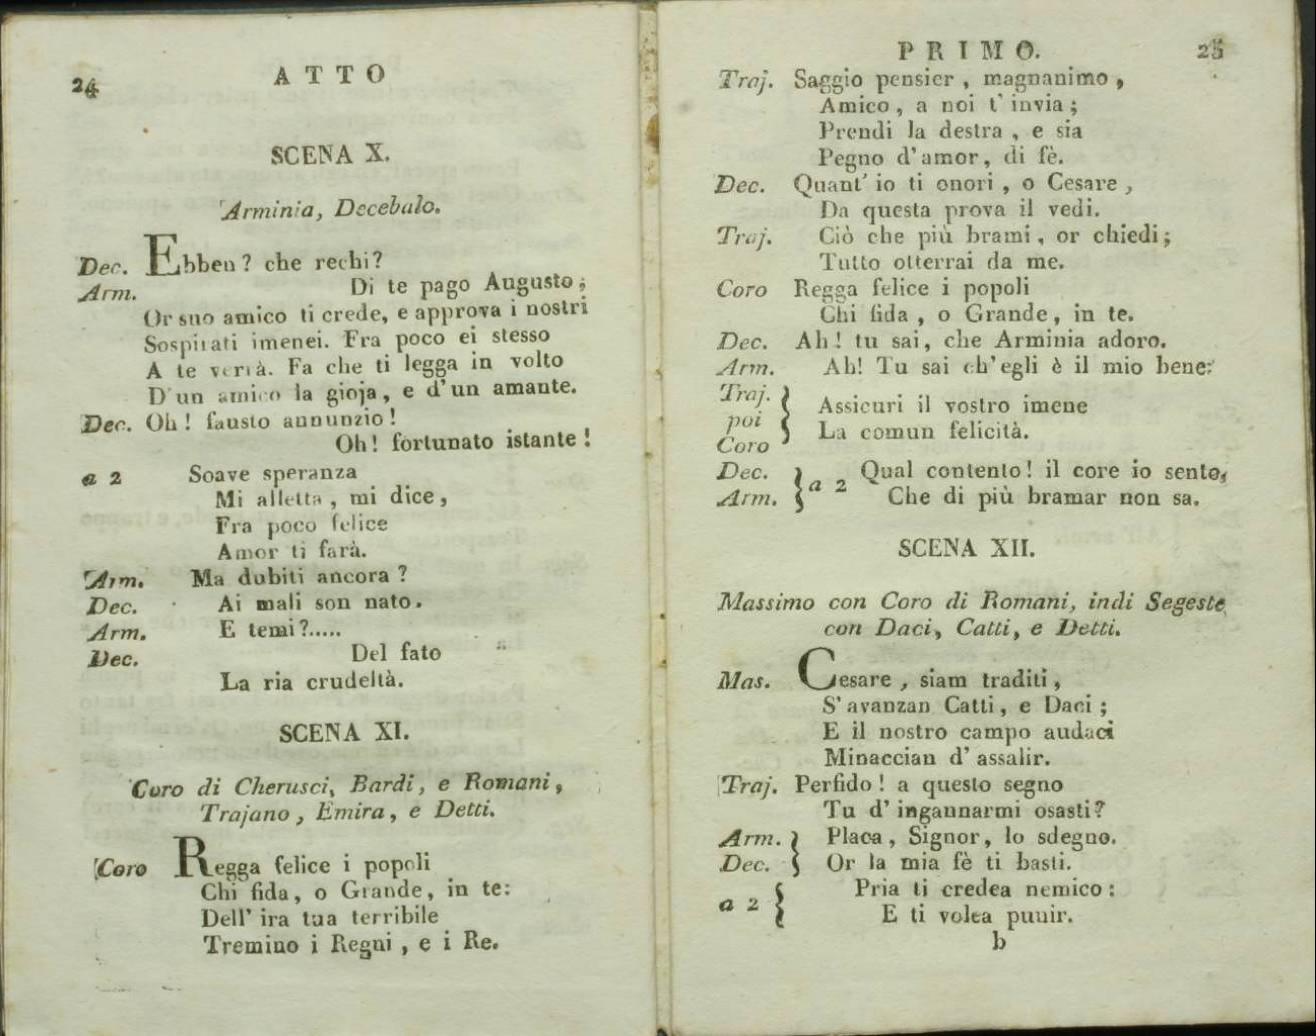 24
ATTO
SCENA X.
Arminia, Decebalo.
Dec. Ebben? che rechi?
Arm. Di te pago Augusto;
Or suo amico ti crede, e approva i nostri
Sospirati imenei. Fra poco ei stesso
A te verrà. Fa che ti legga in volto
D'un amico la gioja, e d'un amante.
Dec. Oh! fausto annunzio!
Oh! fortunato istante!
a 2 Soave speranza
Mi alletta, mi dice,
Fra poco felice
Amor ti farà.
Arm. Ma dubiti ancora?
Dec. Ai mali son nato.
Arm. E temi?.....
Dec. Del fato
La ria crudeltà.
SCENA XI.
Coro di Cherusci, Bardi, e Romani,
Trajano, Emira, e Detti.
Coro Regga felice i popoli
Chi fida, o Grande, in te:
Dell' ira tua terribile
Tremino i Regni, e i Re.
PRIMO.
25
Traj. Saggio pensier, magnanimo,
Amico, a noi t' invia;
Prendi la destra, e sia
Pegno d'amor, di fè.
Dec. Quant' io ti onori, o Cesare,
Da questa prova il vedi.
Traj. Ciò che più brami, or chiedi;
Tutto otterrai da me.
Coro Regga felice i popoli
Chi fida, o Grande, in te.
Dec. Ah! tu sai, che Arminia adoro.
Arm. Ah! Tu sai ch'egli è il mio bene:
Traj.
poi
Coro
} Assicuri il vostro imene
La comun felicità.
Dec.
Arm.
} a 2 Qual contento! il core io sento,
Che di più bramar non sa.
SCENA XII.
Massimo con Coro di Romani, indi Segeste
con Daci, Catti, e Detti.
Mas. Cesare, siam traditi,
S' avanzan Catti, e Daci;
E il nostro campo audaci
Minaccian d' assalir.
Traj. Perfido! a questo segno
Tu d' ingannarmi osasti?
Arm. } Placa, Signor, lo sdegno.
Dec. } Or la mia fè ti basti.
a 2 { Pria ti credea nemico:
E ti volea punir.
b